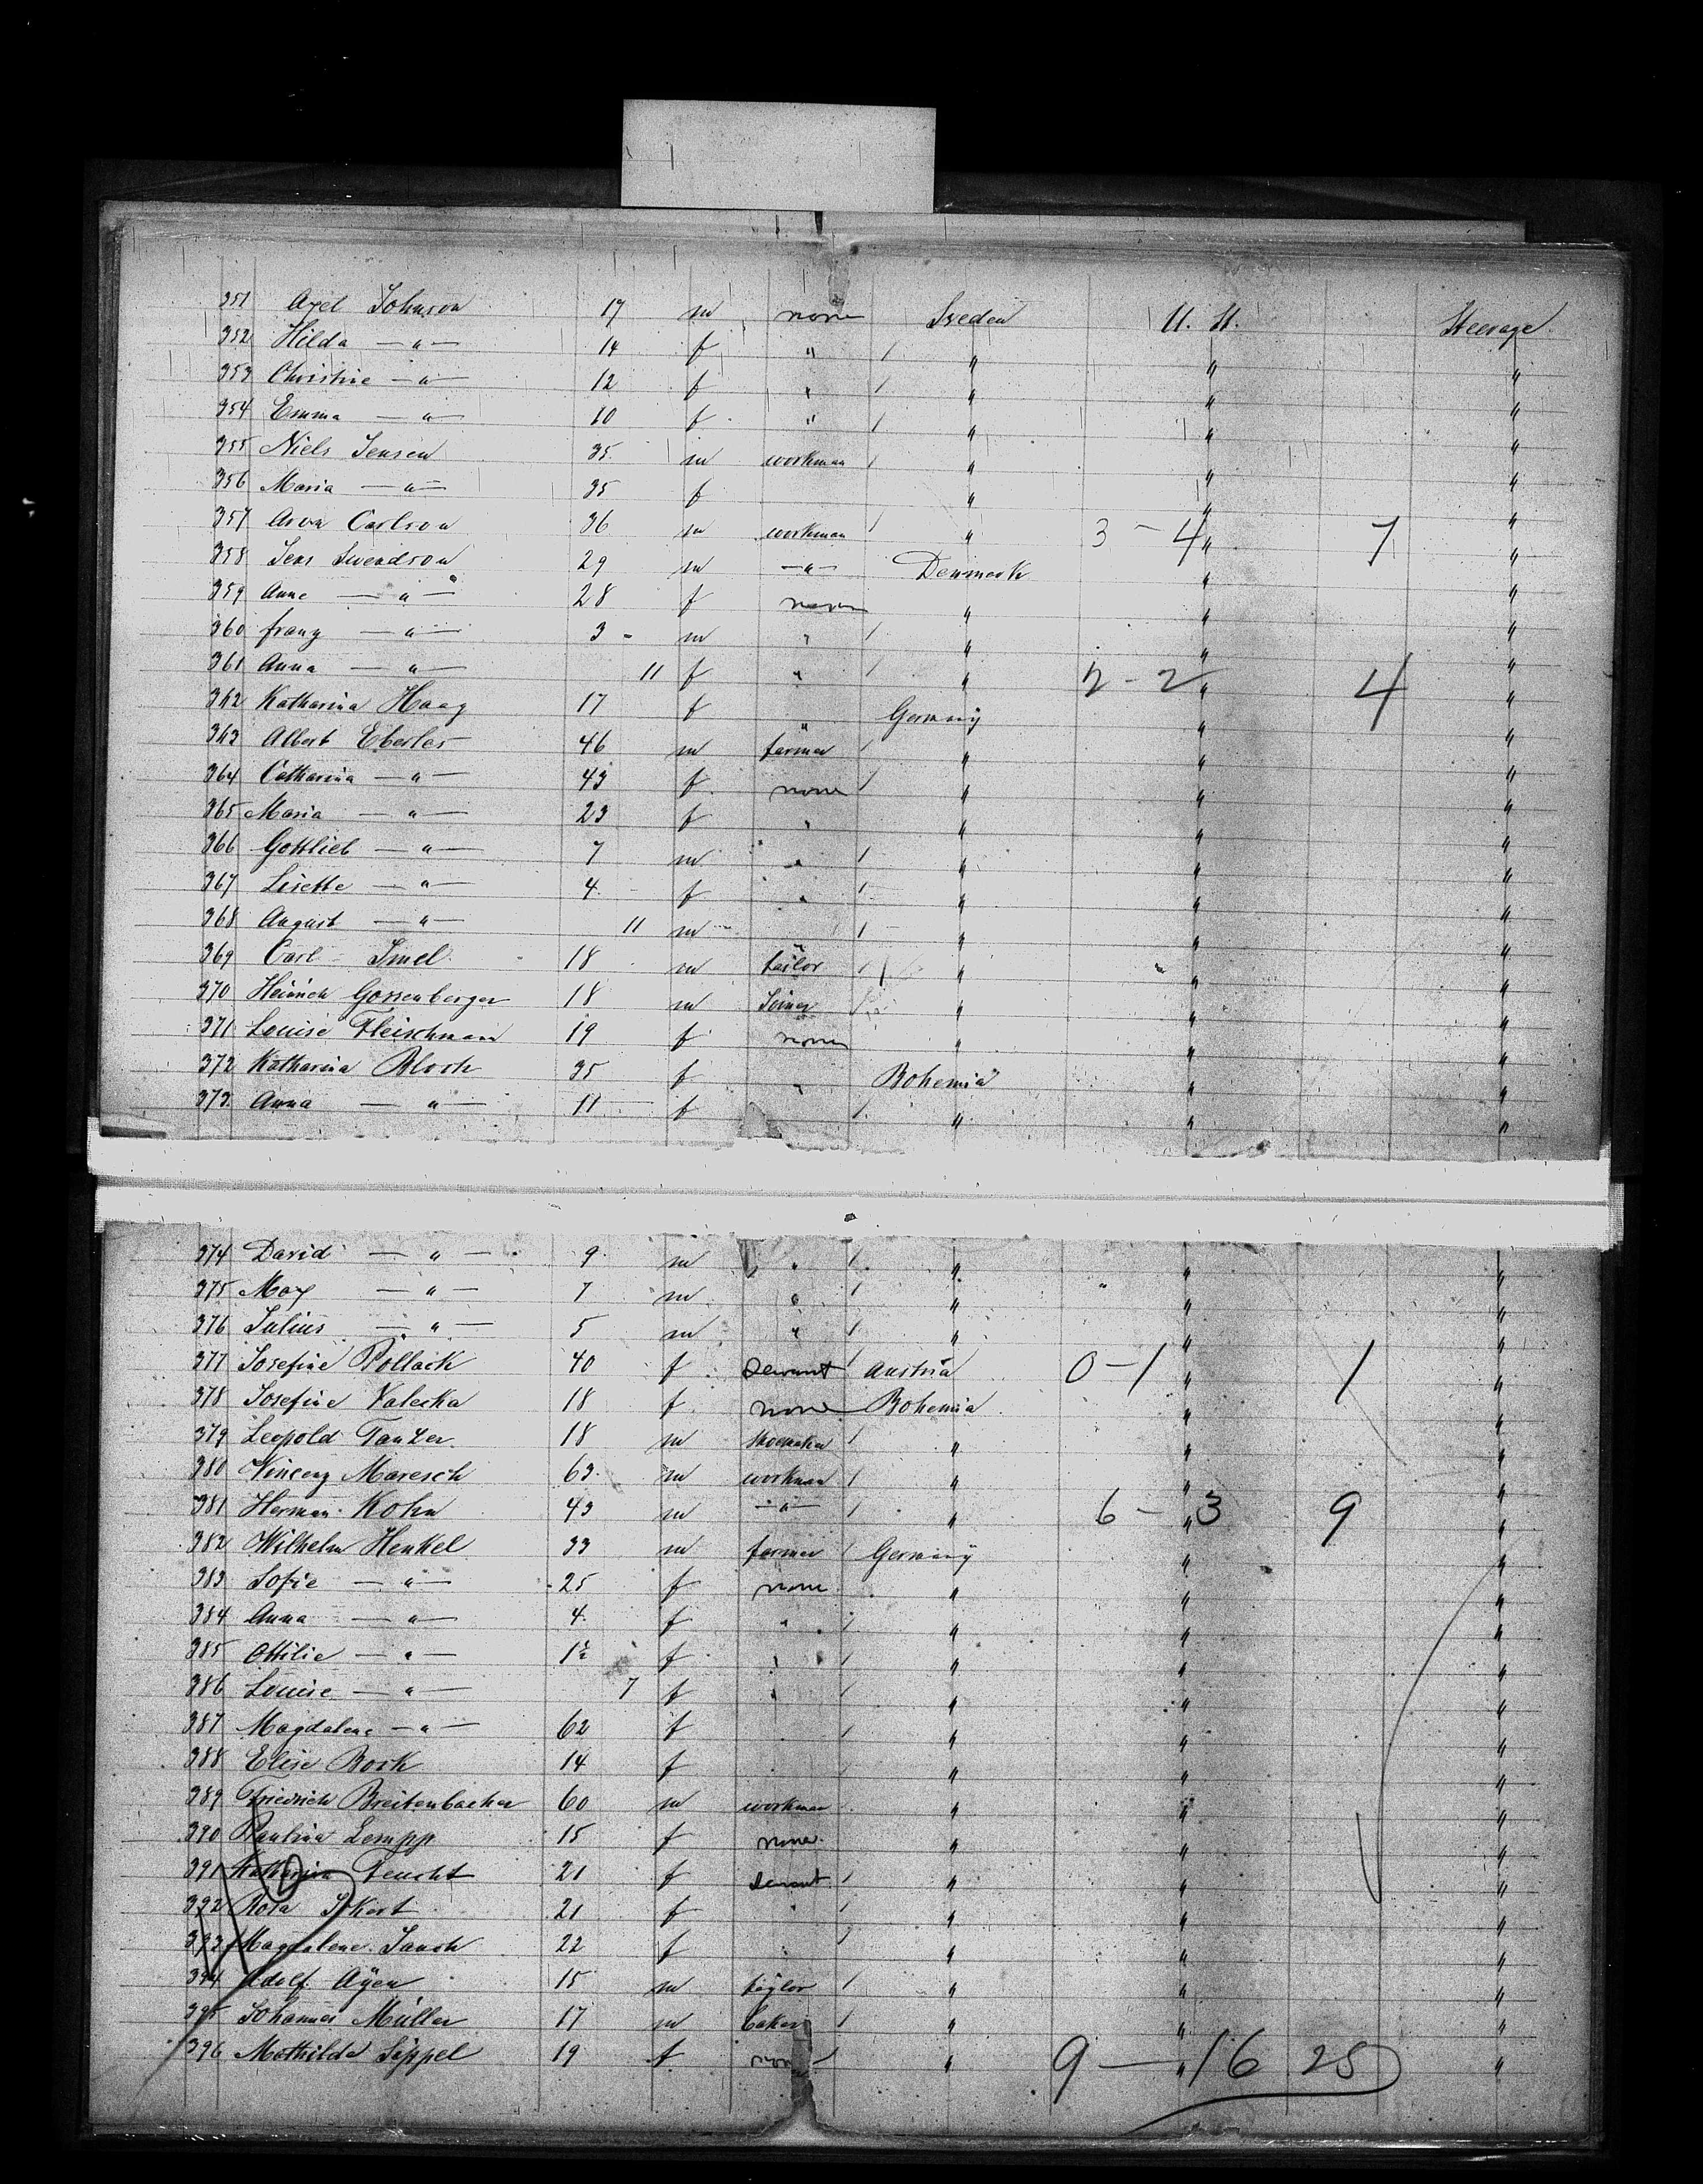 351 Axel Johnson 17 m none Sweden U. St. Steerage
352 Hilda — " — 14 f " / " " "
353 Christine — " — 12 f " / " " "
354 Emma — " — 10 f " / " " "
355 Niels Jensen 35 m workman / " " "
356 Maria — " — 35 f " " "
357 Aron Carlson 36 m workman / " 3 - 4 " 7 "
358 Jens Swendson 29 m — " — Denmark " "
359 Anne — " — 28 f none " " "
360 franz — " — 3 - m " / " " "
361 Anna — " — 11 f " / " 2 - 2 " 4 "
362 Katharina Haag 17 f " Germany " "
363 Albert Eberler 46 m farmer / " " "
364 Catharina — " — 43 f none / " " "
365 Maria — " — 23 f " " " "
366 Gottlieb — " — 7 m " / " " "
367 Lisette — " — 4 f " / " " "
368 August — " — 11 m " / " " "
369 Carl Imel 18 m tailor / " " "
370 Heinrich Gossenberger 18 m Joiner / " " "
371 Louise Fleischman 19 f none " " "
372 Katharina Bloch 35 f " Bohemia " "
373 Anna — " — 11 f / " " "
374 David — " — 9 m " / " " "
375 Max — " — 7 m " / " " "
376 Julius — " — 5 m " / " " "
377 Josefine Pollack 40 f Servant / Austria 0 - 1 " 1 "
378 Josefine Valecka 18 f none Bohemia " "
379 Leopold Tanzer 18 m shoemaker / " " "
380 Vincenz Maresch 63 m workman / " " "
381 Herman Kohn 43 m — " — / " 6 - 3 " 9 "
382 Wilhelm Henkel 33 m farmer / Germany " "
383 Sofie — " — 25 f none " " "
384 Anna — " — 4 f " / " " "
385 Ottilie — " — 1½ f " / " " "
386 Louise — " — 7 f " / " " "
387 Magdalena — " — 62 f " " "
388 Elise Bork 14 f " " "
389 Friedrich Breitenbacher 60 m workman " " "
390 Paulina Lempp 15 f none " " "
391 Katharina Feucht 21 f Servant / " " "
392 Rosa 21 f " / " " "
393 Magdalene Jauch 22 f " / " " "
394 Adolf Ayen 15 m taylor / " " "
395 Johannes Müller 17 m baker / " " "
396 Mathilde Sippel 19 f none / " 9 — " 16 25 "